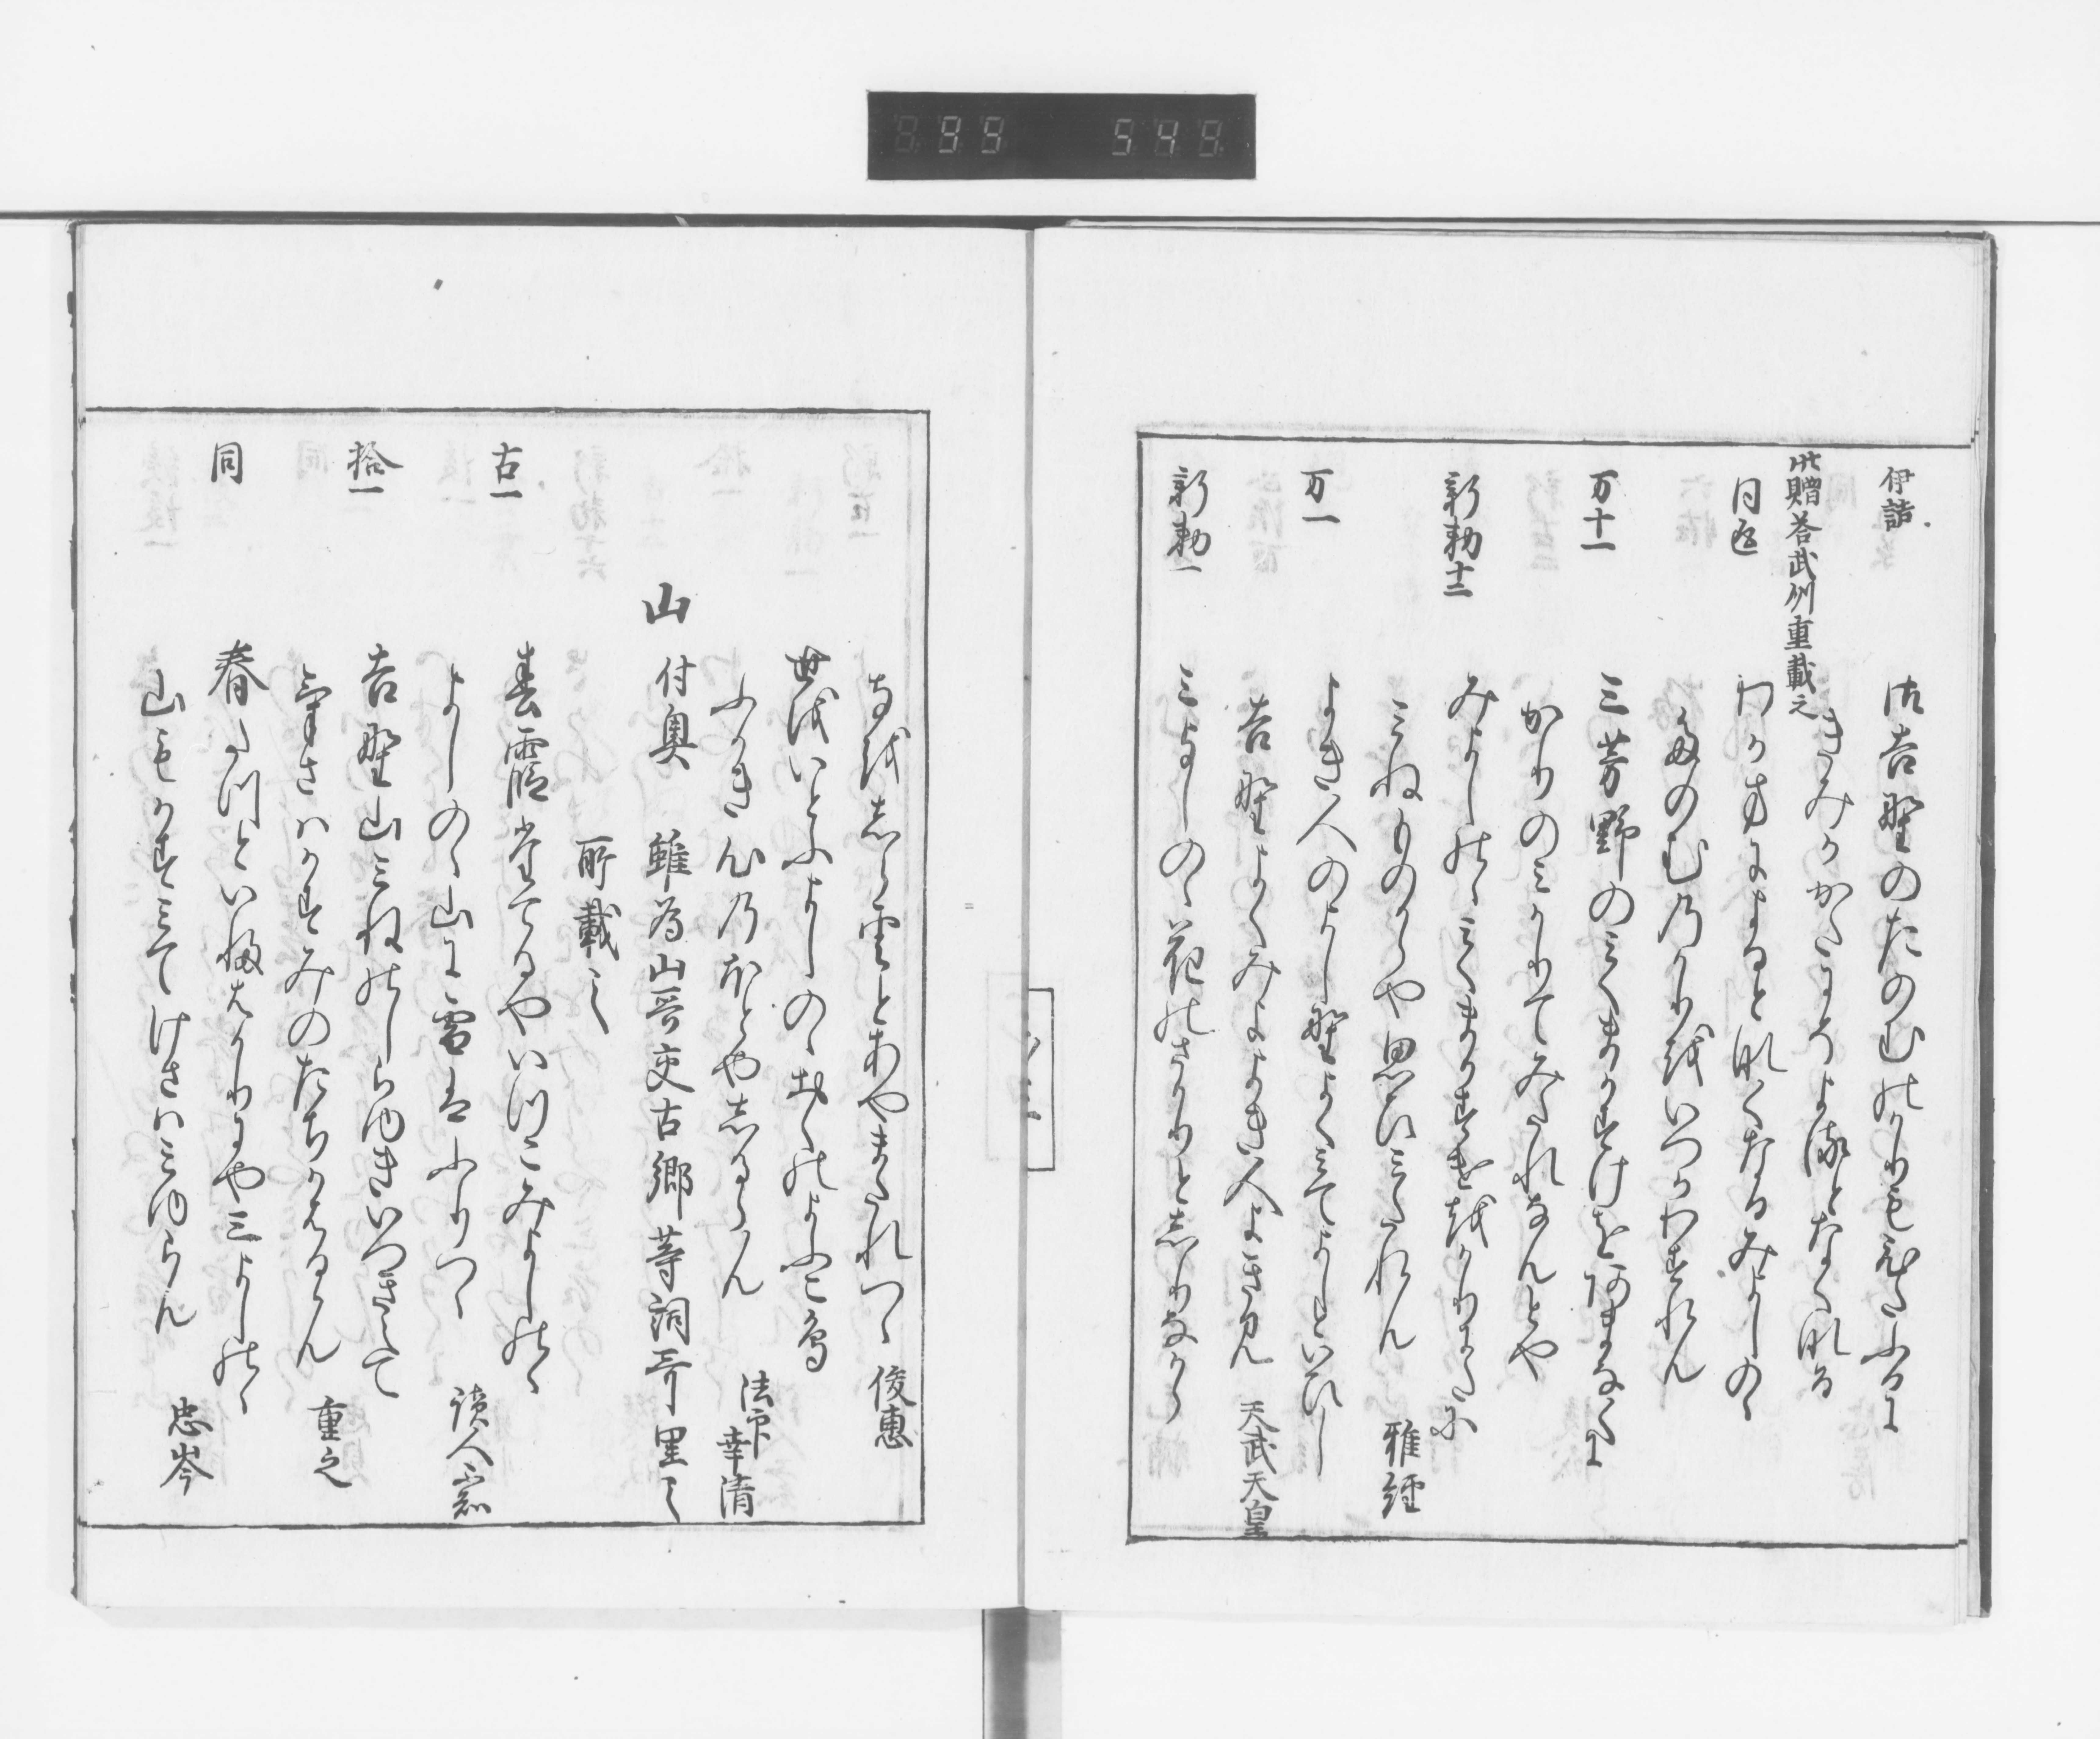 伊語
御吉野のたのむのかりもひたふるに
きみかかたにそよるとなくなる
此贈答武州重載之
同返
わか方によるとなくなるみよしのゝ
たのむのかりをいつかわすれん
万十一
三芳野のみくまかすけをあまなくに
かりのみかりてみたれなんとや
新勅十二
みよしのゝみくまかすけをかりにたに
みねものからや思ひみたれん 雅経
万一
よき人のよし野よくみてよしといひし
吉野よくみよよき人よきみ 天武天皇
新勅一
みよしのゝ花のさかりとしりなから
なをしら雲とあやまたれつゝ 俊恵
世をいとふよしのゝおくのよふこ鳥
ふかき心のほとやしるらん 法印幸清
山 付奥 雖為山哥交古郷等詞哥里に
所載之
古一
春霞たてるやいつこみよしのゝ
よしのゝ山に雪はふりつゝ 読人不知
拾一
吉野山みねのしらゆきいつきえて
けさはかすみのたちかはるらん 重之
同
春たつといふはかりにや三よしのゝ
山もかすみてけさはみゆらん 忠岑
99 548